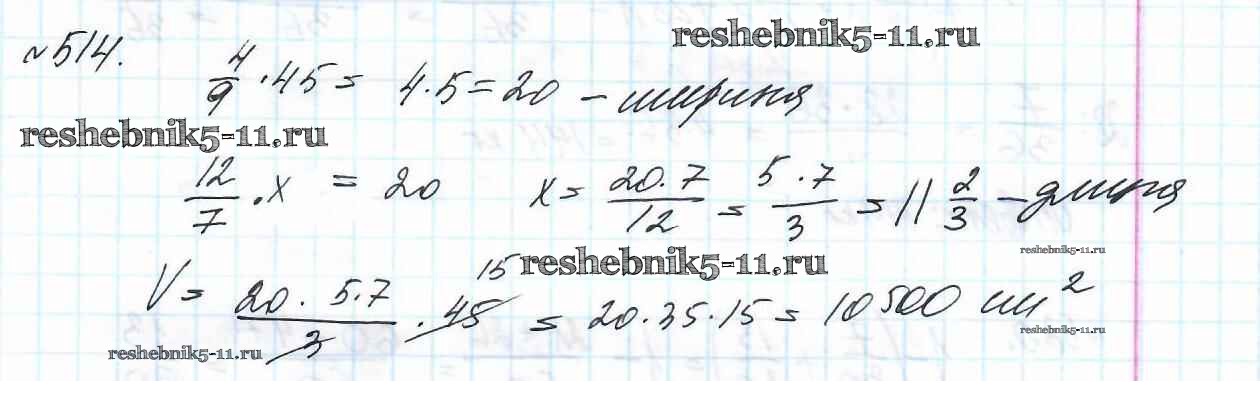 reshebnik5-11.ru
№514.
4/9 · 45 = 4 · 5 = 20 – ширина
reshebnik5-11.ru
12/7 · x = 20 x = 20 · 7/12 = 5 · 7/3 = 11 2/3 – длина
reshebnik5-11.ru
reshebnik5-11.ru
15
V = 20 · 5 · 7/3 · 45 = 20 · 35 · 15 = 10500 см²
reshebnik5-11.ru
reshebnik5-11.ru